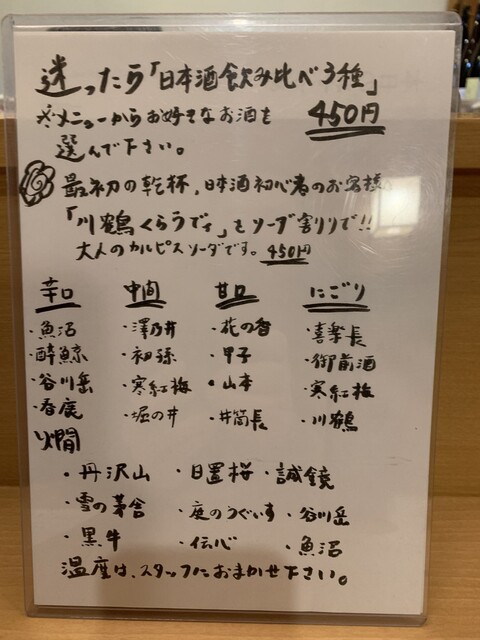 迷ったら「日本酒飲み比べ3種」
※メニューからお好きなお酒を 450円
選んで下さい。
最初の乾杯、日本酒初心者のお客様
「川鶴くらうでぃ」をソーダ割りで!!
大人のカルピスソーダです。450円
辛口 中間 甘口 にごり
・魚沼 ・澤乃井 ・花の香 ・喜楽長
・酔鯨 ・初孫 ・甲子 ・御前酒
・谷川岳 ・寒紅梅 ・山本 ・寒紅梅
・春鹿 ・堀の井 ・井筒長 ・川鶴
燗
・丹沢山 ・日置桜 ・誠鏡
・雪の茅舎 ・庭のうぐいす ・谷川岳
・黒牛 ・伝心 ・魚沼
温度は、スタッフにおまかせ下さい。